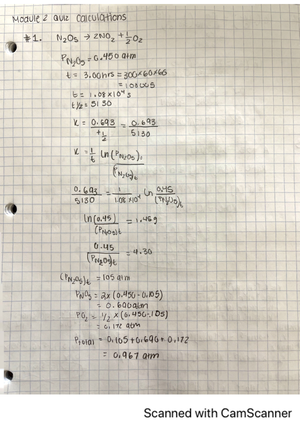 Module 2 Quiz Calculations
#1. N₂O₅ → 2NO₂ + ½O₂
P N₂O₅ = 0.450 atm
t = 3.00 hrs = 3.00×60×60
= 10800 s
t = 1.08×10⁴ s
t½ = 5130
k = 0.693 / t½ = 0.693 / 5130
k = 1/t ln (P N₂O₅)ᵢ / (N₂O₅)t
0.693 / 5130 = 1 / 1.08 ×10⁴ ln 0.45 / (PN₂O₅)t
ln (0.45) / (PN₂O₅)t = 1.459
0.45 / (PN₂O₅)t = 4.30
(PN₂O₅)t = 105 atm
P NO₂ = 2 × (0.450 - 0.105)
= 0.690 atm
PO₂ = ½ × (0.450 - .105)
= 0.172 atm
Ptotal = 0.105 + 0.690 + 0.172
= 0.967 atm
Scanned with CamScanner